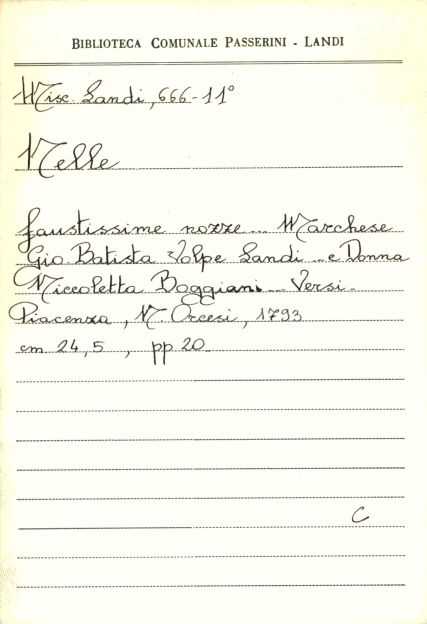 BIBLIOTECA COMUNALE PASSERINI - LANDI
Misc. Landi, 666-11°
Nelle
faustissime nozze... Marchese
Gio Batista Volpe Landi... e Donna
Niccoletta Boggiani... Versi.
Piacenza, N. Orcesi, 1793
cm 24,5, pp 20
C